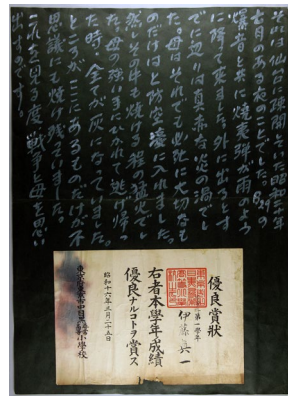 それは仙台に疎開
七月のある夜のことでした。
爆音と共に焼夷弾が雨のよう
に降って来ました。外に出るとす
でに辺りは真赤な炎の渦でし
た。母はそれでも必死に大切なも
のだけはと防空壕に入れました。
然しその中も焼ける程の猛火で
た。母の強い手にひかれて逃げ帰っ
た時、全てが灰になっていました。
ところがここにあるものだけが不
思議にも焼け残っていました。
これを見る度、戦争と母を思い
出すのです。
優良賞狀
第一學年
伊藤眞一
右者本學年成績
優良ナルコトヲ賞ス
昭和十六年三月二十五日
小學校